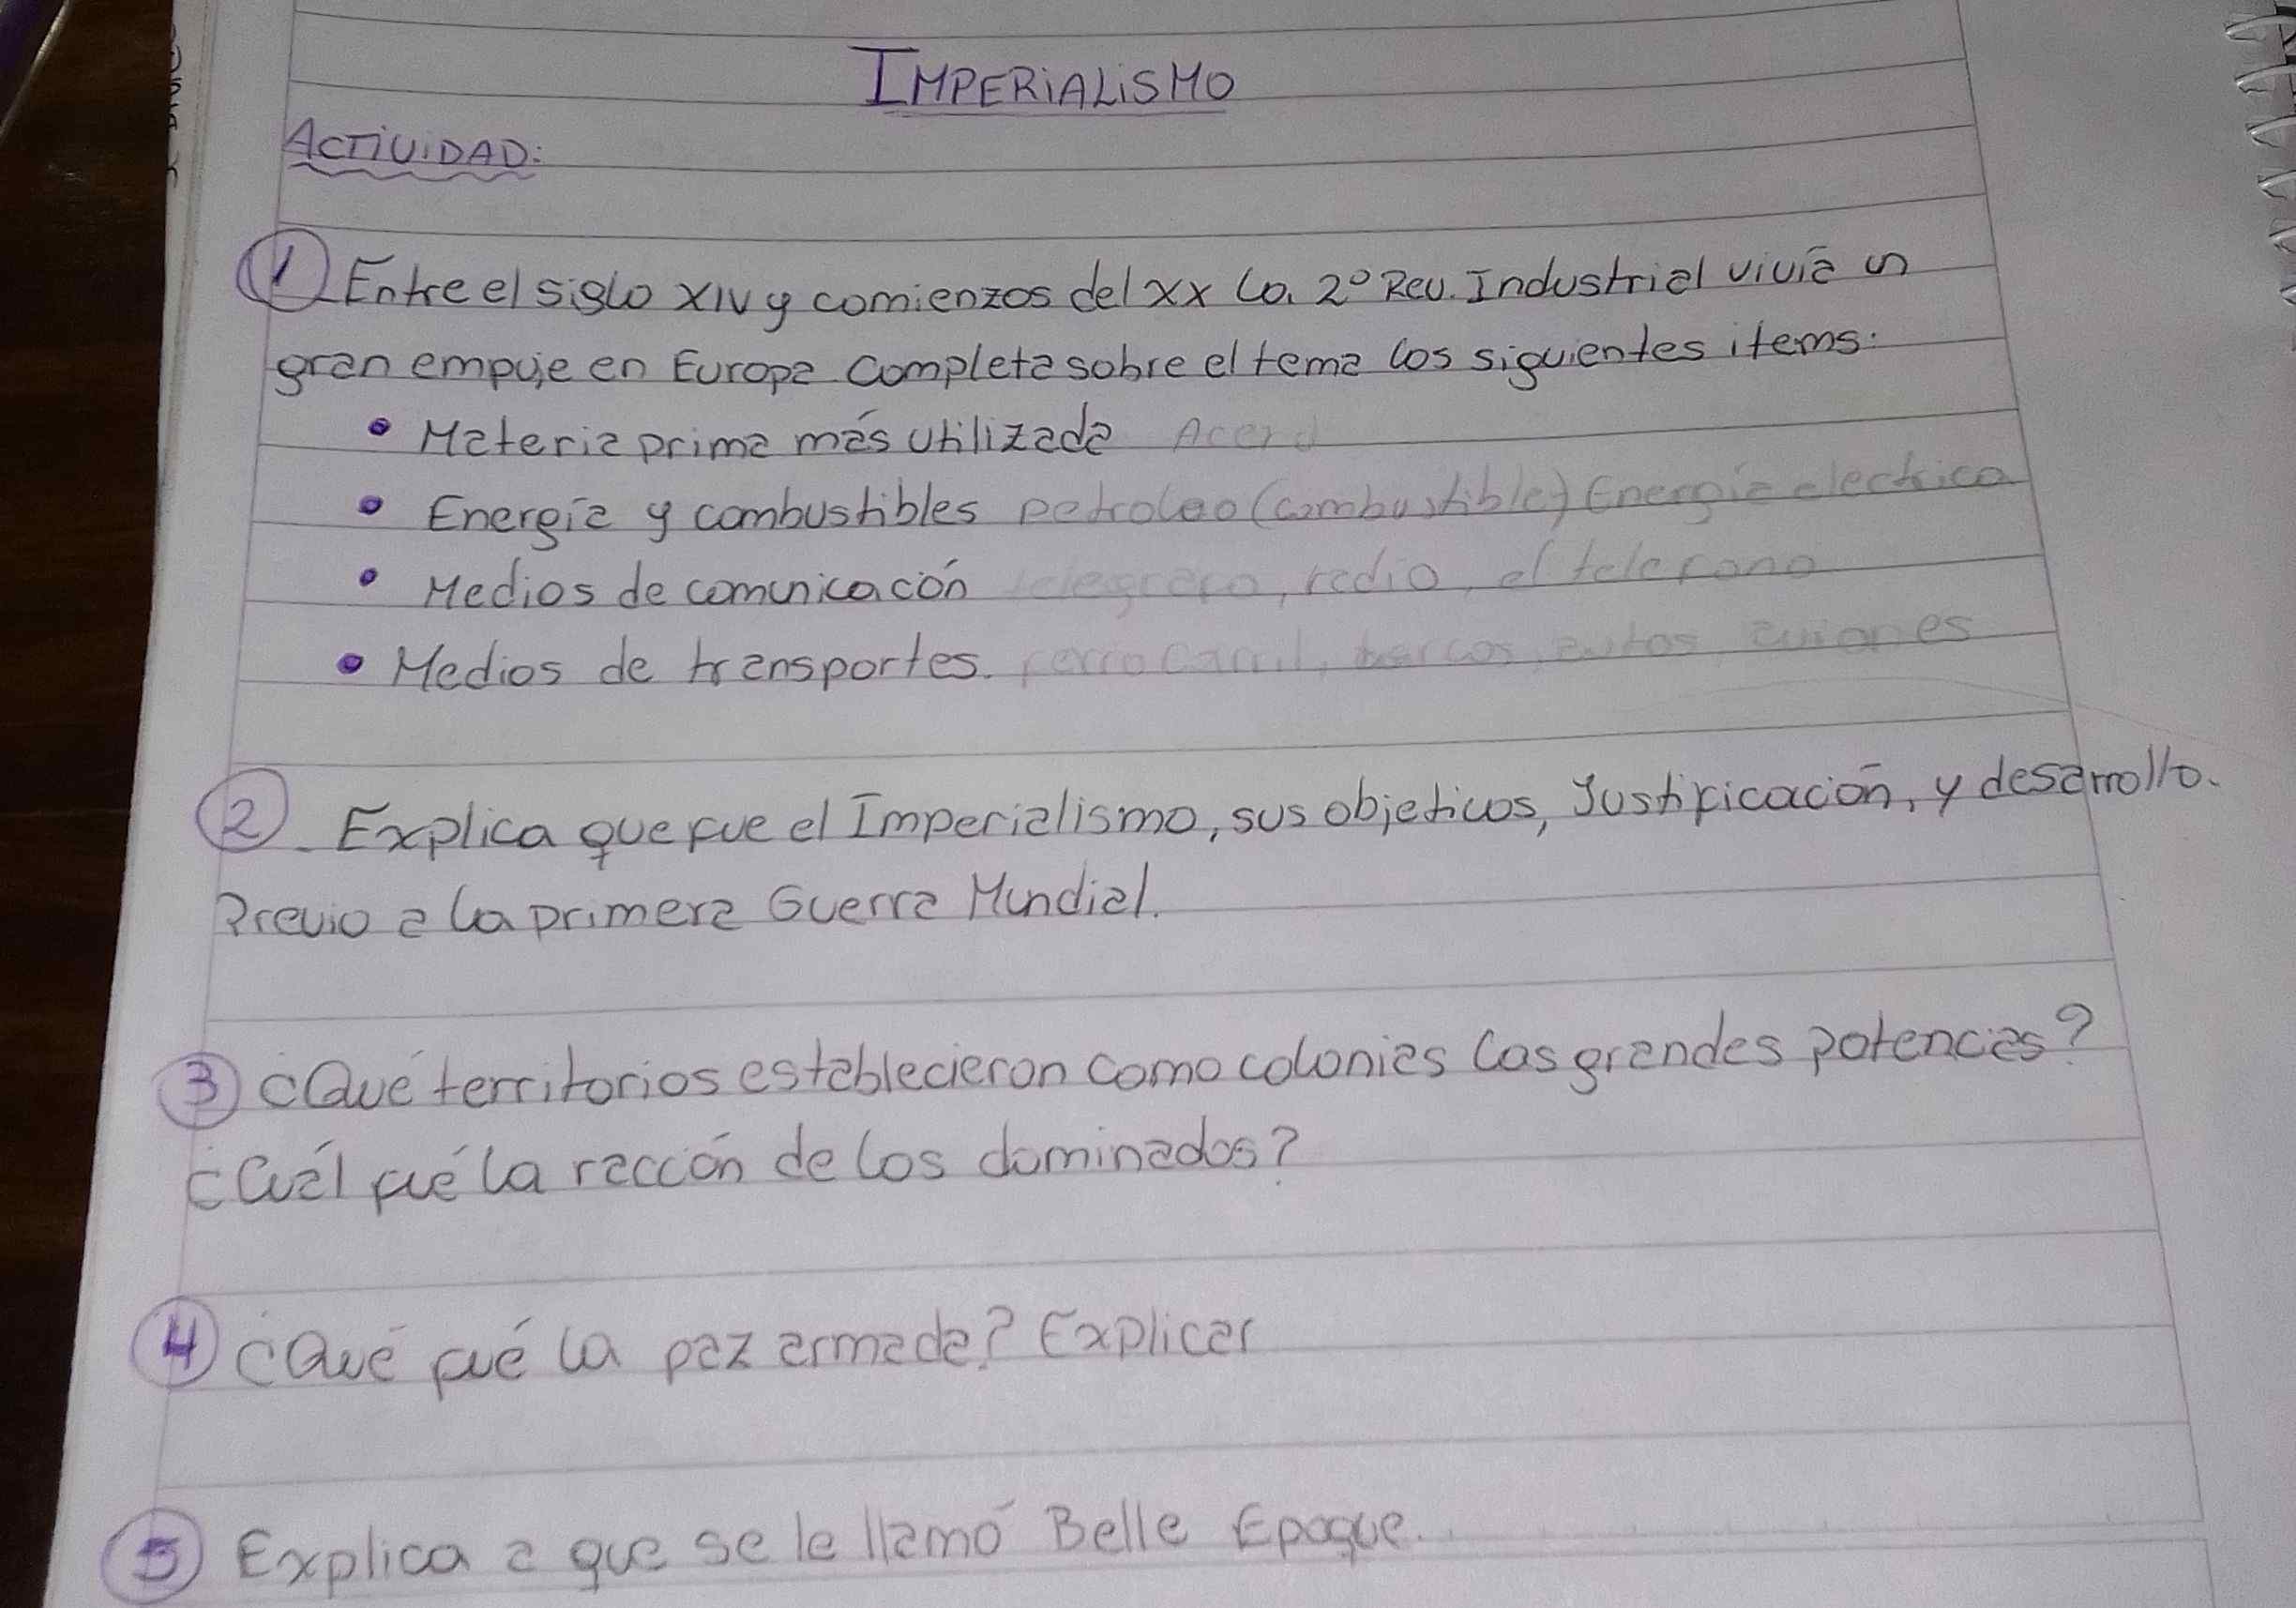 IMPERIALISMO
ACTIVIDAD:
1 Entre el siglo XIV y comienzos del XX la 2º Rev. Industrial vivía un
gran empuje en Europa. Completa sobre el tema los siguientes items:
• Materia prima más utilizada Acero
• Energía y combustibles petroleo (combustible) Energía electrica
• Medios de comunicación telegrafo, radio, el telefono
• Medios de transportes. ferrocarril, barcos, autos, aviones
2. Explica que fue el Imperialismo, sus objeticos, Justificación, y desarrollo.
Previo a la primera Guerra Mundial.
3 ¿Qué territorios establecieron como colonias las grandes potencias?
¿Cuál fué la racción de los dominados?
4 ¿Qué fué la paz armada? Explicar
5 Explica a que se le llamó Belle Epoque.